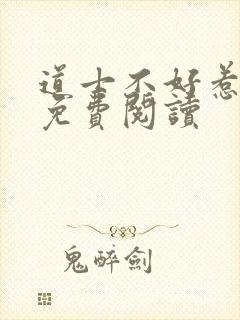 道士不好惹
免費閱讀
鬼醉劍